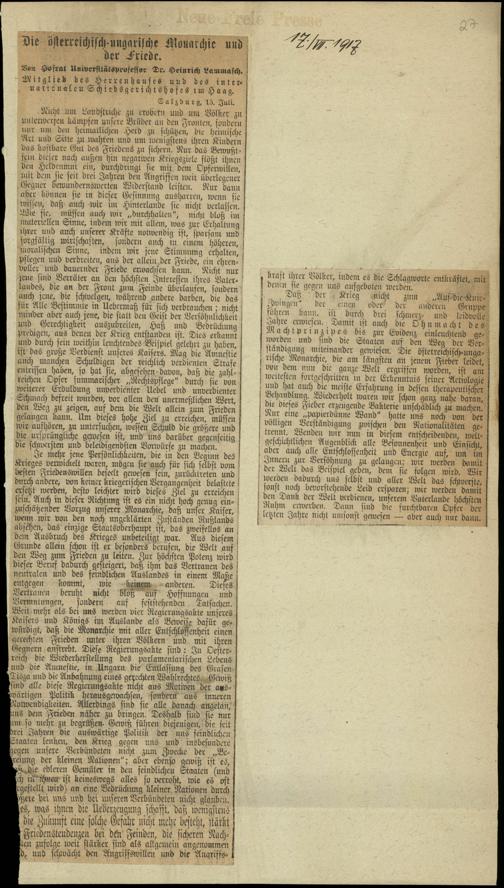 Neue Freie Presse
27
17/VII. 1917
Die österreichisch-ungarische Monarchie und
der Friede.
Von Hofrat Universitätsprofessor Dr. Heinrich Lammasch,
Mitglied des Herrenhauses und des inter-
nationalen Schiedsgerichtshofes im Haag.
Salzburg, 15. Juli.
Nicht um Landstriche zu erobern und um Völker zu
unterwerfen kämpfen unsere Brüder an den Fronten, sondern
nur um den heimatlichen Herd zu schützen, die heimische
Art und Sitte zu wahren und um wenigstens ihren Kindern
das kostbare Gut des Friedens zu sichern. Nur das Bewußt-
sein dieser nach außen hin negativen Kriegsziele flößt ihnen
den Heldenmut ein, durchdringt sie mit dem Opferwillen,
mit dem sie seit drei Jahren den Angriffen weit überlegener
Gegner bewundernswerten Widerstand leisten. Nur dann
aber können sie in dieser Gesinnung ausharren, wenn sie
wissen, daß auch wir im Hinterlande sie nicht verlassen.
Wie sie, müssen auch wir „durchhalten", nicht bloß im
materiellen Sinne, indem wir mit allem, was zur Erhaltung
ihrer und auch unserer Kräfte notwendig ist, sparsam und
sorgfältig wirtschaften, sondern auch in einem höheren,
moralischen Sinne, indem wir jene Stimmung erhalten,
pflegen und verbreiten, aus der allein der Friede, ein ehren-
voller und dauernder Friede erwachsen kann. Nicht nur
jene sind Verräter an den höchsten Interessen ihres Vater-
landes, die an der Front zum Feinde überlaufen, sondern
auch jene, die schwelgen, während andere darben, die das
für Alle Bestimmte in Uebermaß für sich verbrauchen; nicht
minder aber auch jene, die statt den Geist der Versöhnlichkeit
und Gerechtigkeit auszubreiten, Haß und Bedrückung
predigen, aus denen der Krieg entstanden ist. Dies erkannt
und durch sein weithin leuchtendes Beispiel gelehrt zu haben,
ist das große Verdienst unjeres Kaisers. Mag die Amnestie
auch manchen Schuldigen der wirklich verdienten Strafe
entrissen haben, so hat sie, abgesehen davon, daß die zahl-
reichen Opfer summarischer „Rechtspflege" durch sie von
weiterer Erduldung unverdienter Uebel und unverdienter
Schmach befreit wurden, vor allem den unermeßlichen Wert,
den Weg zu zeigen, auf dem die Welt allein zum Frieden
gelangen kann. Um dieses hohe Ziel zu erreichen, müssen
wir aufhören, zu untersuchen, wessen Schuld die größere und
die ursprüngliche gewesen ist, und uns darüber gegenseitig
die schwersten und beleidigendsten Vorwürfe zu machen.
Je mehr jene Persönlichkeiten, die in den Beginn des
Krieges verwickelt waren, mögen sie auch für sich selbst vom
besten Friedenswillen beseelt gewesen sein, zurücktreten und
durch andere, von keiner kriegerischen Vergangenheit belastete
ersetzt werden, desto leichter wird dieses Ziel zu erreichen
sein. Auch in dieser Richtung ist es ein nicht hoch genug ein-
zuschätzender Vorzug unserer Monarchie, daß unser Kaiser,
wenn wir von den noch ungeklärten Zuständen Rußlands
absehen, das einzige Staatsoberhaupt ist, das zweifellos an
dem Ausbruch des Krieges unbeteiligt war. Aus diesem
Grunde allein schon ist er besonders berufen, die Welt auf
den Weg zum Frieden zu leiten. Zur höchsten Potenz wird
dieser Beruf dadurch gesteigert, daß ihm das Vertrauen des
neutralen und des feindlichen Auslands in einem Maße
entgegen kommt, wie keinem anderen. Dieses
Vertrauen beruht nicht bloß auf Hoffnungen und
Vermutungen, sondern auf feststehenden Tatsachen.
Weit mehr als bei uns werden vier Regierungsakte unseres
Kaisers und Königs im Auslande als Beweise dafür ge-
würdigt, daß die Monarchie mit aller Entschlossenheit einen
gerechten Frieden unter ihren Völkern und mit ihren
Gegnern anstrebt. Diese Regierungsakte sind: In Oester-
reich die Wiederherstellung des parlamentarischen Lebens
und die Amnestie, in Ungarn die Entlassung des Grafen
Tisza und die Anbahnung eines gerechten Wahlrechtes. Gewiß
sind alle diese Regierungsakte nicht aus Motiven der aus-
wärtigen Politik herausgewachsen, sondern aus inneren
Notwendigkeiten. Allerdings sind sie alle danach angetan,
uns dem Frieden näher zu bringen. Deshalb sind sie nur
um so mehr zu begrüßen. Gewiß führen diejenigen, die seit
drei Jahren die auswärtige Politik der uns feindlichen
Staaten lenken, den Krieg gegen uns und insbesondere
gegen unsere Verbündeten nicht zum Zwecke der „Be-
freiung der kleinen Nationen"; aber ebenso gewiß ist es,
daß die edleren Gemüter in den feindlichen Staaten (und
auch in ihnen ist keineswegs alles so verroht, wie es oft
dargestellt wird) an eine Bedrückung kleiner Nationen durch
größere bei uns und bei unseren Verbündeten nicht glauben.
was ihnen die Ueberzeugung schafft, daß wenigstens
die Zukunft eine solche Gefahr nicht mehr besteht, stärkt
Friedenstendenzen bei den Feinden, die sicheren Nach-
zufolge weit stärker sind als allgemein angenommen
und schwächt den Angriffswillen und die Angriffs-
kraft ihrer Völker, indem es die Schlagworte entkräftet, mit
denen sie gegen uns aufgeboten werden.
Daß der Krieg nicht zum „Auf-die-Knie-
Zwingen" der einen oder der anderen Gruppe
führen kann, ist durch drei schmerz- und leidvolle
Jahre erwiesen. Damit ist auch die Ohnmacht des
Machtprinzipes bis zur Evidenz einleuchtend ge-
worden und sind die Staaten auf den Weg der Ver-
ständigung miteinander gewiesen. Die österreichisch-unga-
rische Monarchie, die am längsten an jenem Fieber leidet,
von dem nun die ganze Welt ergriffen worden, ist am
weitesten fortgeschritten in der Erkenntnis seiner Aetiologie
und hat auch die meiste Erfahrung in dessen therapeutischer
Behandlung. Wiederholt waren wir schon ganz nahe daran,
die dieses Fieber erzeugende Bakterie unschädlich zu machen.
Nur eine „papierdünne Wand" hatte uns noch von der
völligen Verständigung zwischen den Nationalitäten ge-
trennt. Wenden wir nun in diesem entscheidenden, welt-
geschichtlichen Augenblick alle Besonnenheit und Einsicht,
aber auch alle Entschlossenheit und Energie auf, um im
Innern zur Versöhnung zu gelangen; wir werden damit
der Welt das Beispiel geben, dem sie folgen wird. Wir
werden dadurch uns selbst und aller Welt das schwerste,
sonst noch bevorstehende Leid ersparen; wir werden damit
den Dank der Welt verdienen, unserem Vaterland höchsten
Ruhm erwerben. Dann sind die furchtbaren Opfer der
letzten Jahre nicht umsonst gewesen — aber auch nur dann.